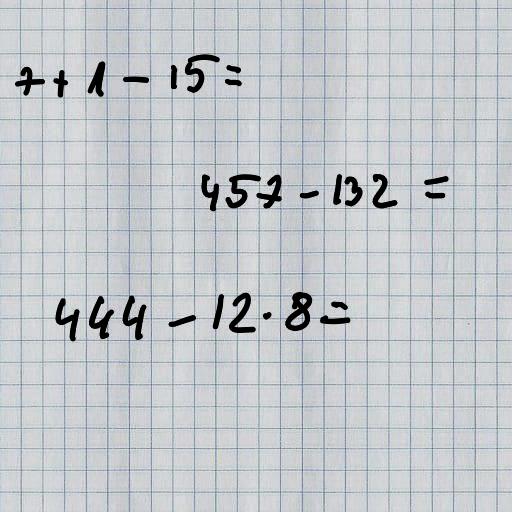 7 + 1 - 15 =
457 - 132 =
444 - 12 · 8 =